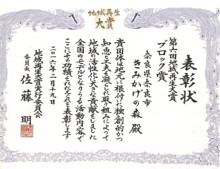 地域再生
大賞
表彰状
第六回地域再生大賞
ブロック賞
奈良県奈良市
きみかげの森 殿
貴団体は地元に根付いた独創的かつ
知恵と工夫を凝らした取り組みによって
地域の活性化に大きな貢献をしました
全国のモデルとなりうる活動内容で
ここにその功績をたたえ表彰します
二〇一六年二月十九日
地域再生大賞実行委員会
委員長 佐藤 明